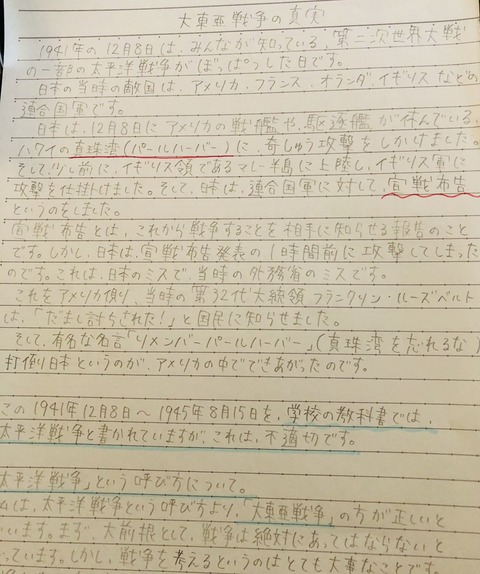 大東亜戦争の真実
1941年の12月8日は、みんなが知っている、第二次世界大戦
の一部の太平洋戦争がぼっぱつした日です。
日本の当時の敵国は、アメリカ、フランス、オランダ、イギリスなどの
連合国軍です。
日本は、12月8日にアメリカの戦艦や、駆逐艦が休んでいる、
ハワイの真珠湾(パールハーバー)に、奇しゅう攻撃をしかけました。
そして、少し前に、イギリス領であるマレー半島に上陸し、イギリス軍に
攻撃を仕掛けました。そして、日本は、連合国軍に対して、宣戦布告
というのをしました。
宣戦布告とは、これから戦争することを相手に知らせる報告のこと
です。しかし、日本は、宣戦布告発表の1時間前に攻撃してしまった
のです。これは、日本のミスで、当時の外務省のミスです。
これをアメリカ側り、当時の第32代大統領フランクリン・ルーズベルト
は、「だまし討ちされた!」と国民に知らせました。
そして、有名な名言「リメンバーパールハーバー」(真珠湾を忘れるな)
打倒日本というのが、アメリカの中でできあがったのです。
この1941年12月8日〜1945年8月15日を、学校の教科書では、
太平洋戦争と書かれていますが、これは、不適切です。
太平洋戦争」という呼び方について。
は、太平洋戦争という呼び方より、「大東亜戦争」の方が正しいと
います。まず、大前提として、戦争は絶対にあってはならないと
っています。しかし、戦争を考えるというのはとても大事なことです。